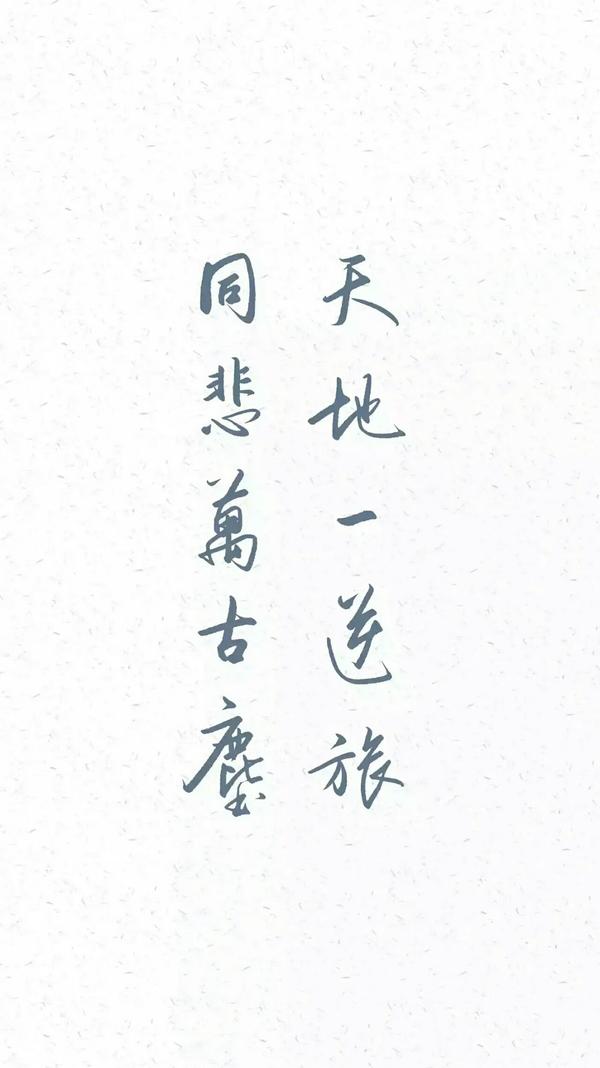 天地一逆旅
同悲萬古塵